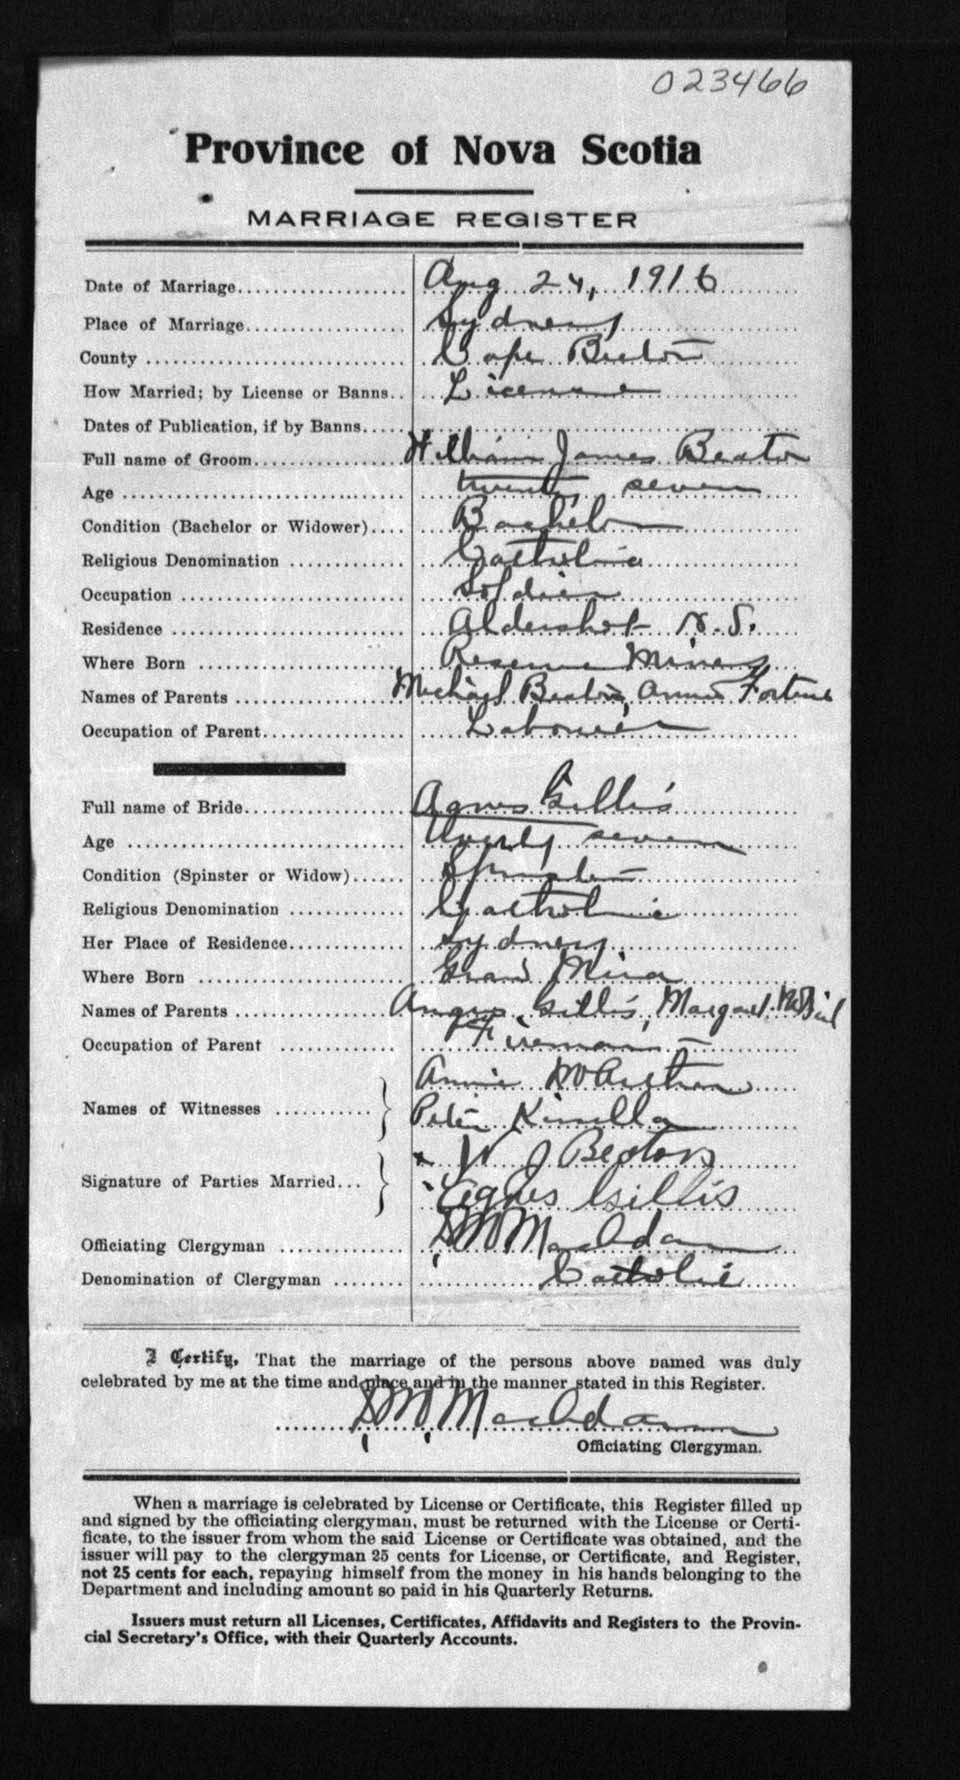 023466
Province of Nova Scotia
MARRIAGE REGISTER
Date of Marriage Aug 24, 1916
Place of Marriage Sydney
County Cape Breton
How Married; by License or Banns License
Dates of Publication, if by Banns
Full name of Groom William James Beaton
Age twenty seven
Condition (Bachelor or Widower) Bachelor
Religious Denomination Catholic
Occupation Soldier
Residence Aldershot N.S.
Where Born Reserve Mines
Names of Parents Michael Beaton, Annie Fortune
Occupation of Parent Labourer
Full name of Bride Agnes Gillis
Age twenty seven
Condition (Spinster or Widow) Spinster
Religious Denomination Catholic
Her Place of Residence Sydney
Where Born Grand Mira
Names of Parents Angus Gillis, Margaret
Occupation of Parent Fireman
Names of Witnesses Annie McArthur
Peter Kinsella
Signature of Parties Married W J Beaton
Agnes Gillis
Officiating Clergyman D M MacAdam
Denomination of Clergyman Catholic
I Certify, That the marriage of the persons above named was duly
celebrated by me at the time and place and in the manner stated in this Register.
D M MacAdam
Officiating Clergyman.
When a marriage is celebrated by License or Certificate, this Register filled up
and signed by the officiating clergyman, must be returned with the License or Certi-
ficate, to the issuer from whom the said License or Certificate was obtained, and the
issuer will pay to the clergyman 25 cents for License, or Certificate, and Register,
not 25 cents for each, repaying himself from the money in his hands belonging to the
Department and including amount so paid in his Quarterly Returns.
Issuers must return all Licenses, Certificates, Affidavits and Registers to the Provin-
cial Secretary's Office, with their Quarterly Accounts.